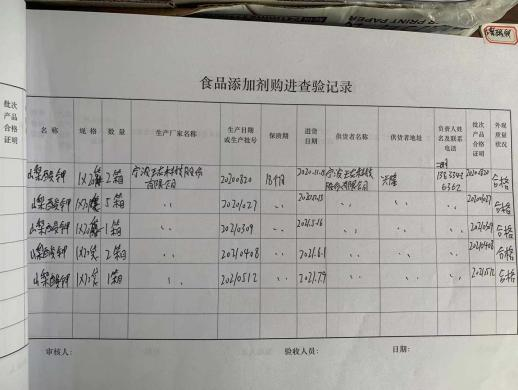 PRINT PAPER
食品添加剂购进查验记录
批次产品合格证明 名称 规格 数量 生产厂家名称 生产日期或生产批号 保质期 进货日期 供货者名称 供货者地址 负责人姓名及联系电话 批次产品合格证明 外观质量状况
山梨酸钾 1×20袋 2箱 宁波王龙科技股份有限公司 20200820 18个月 宁波王龙科技股份有限公司 20200820 合格
山梨酸钾 5箱 〃 20201027 〃 〃 〃 20201027 合格
山梨酸钾 1箱 〃 20210309 〃 2021.5.16 〃 〃 20210309 合格
山梨酸钾 1×20袋 2箱 〃 20210408 〃 2021.6.1 〃 〃 20210408 合格
山梨酸钾 1×20袋 1箱 〃 20210512 〃 2021.7.9 〃 〃 20210512 合格
审核人： 验收人员： 日期：